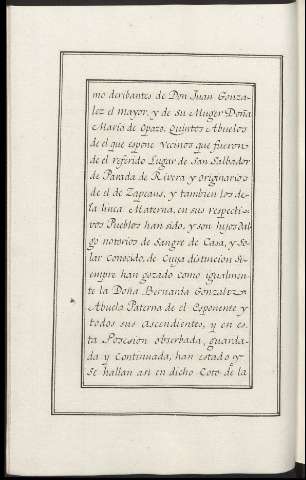 mo deribantes de Don Juan Gonza-
lez el mayor, y de su Muger Doña
Maria de Opazo, Quintos Abuelos
de el que espone vecinos que fueron
de el referido Lugar de San Salbador
de Parada de Rivera y originarios
de el de Zapeaus, y tambien los de
la linea Materna, en sus respecti-
vos Pueblos han sido, y son hijos dal
go notorios de Sangre de Casa, y So-
lar Conocido, de Cuya distincion Si-
empre han gozado como igualmen-
te la Doña Bernarda Gonzalez
Abuela Paterna de el Esponente y
todos sus Ascendientes, y en es-
ta Posesion obserbada, guarda-
da y Continuada, han estado y
Se hallan asi en dicho Coto de la